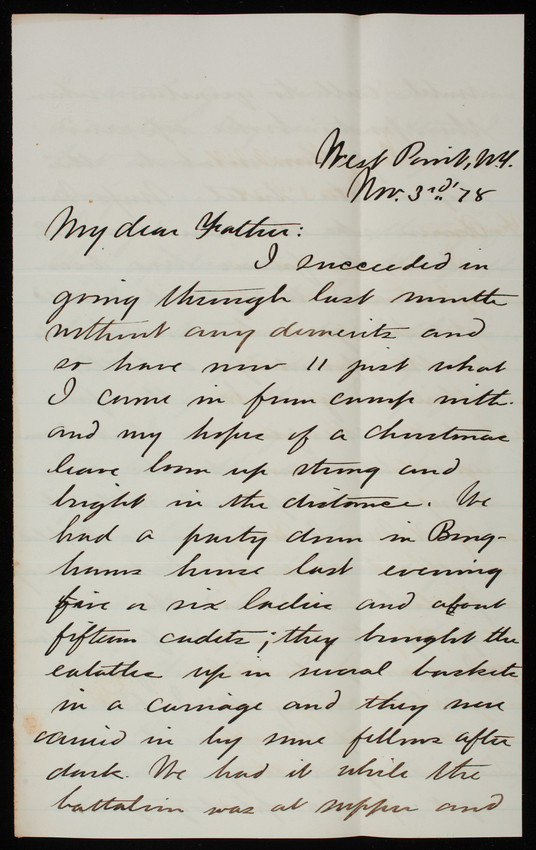 West Point, N.Y.
Nov. 3rd, 78
My dear Father:
I succeeded in
going through last month
without any demerits and
so have now 11 just what
I came in from camp with.
and my hopes of a christmas
leave loom up strong and
bright in the distance. We
had a party down in Bing-
hams house last evening
five or six ladies and about
fifteen cadets; they brought the
eatables up in several baskets
in a carriage and they were
carried in by some fellows after
dark. We had it while the
battalion was at supper and